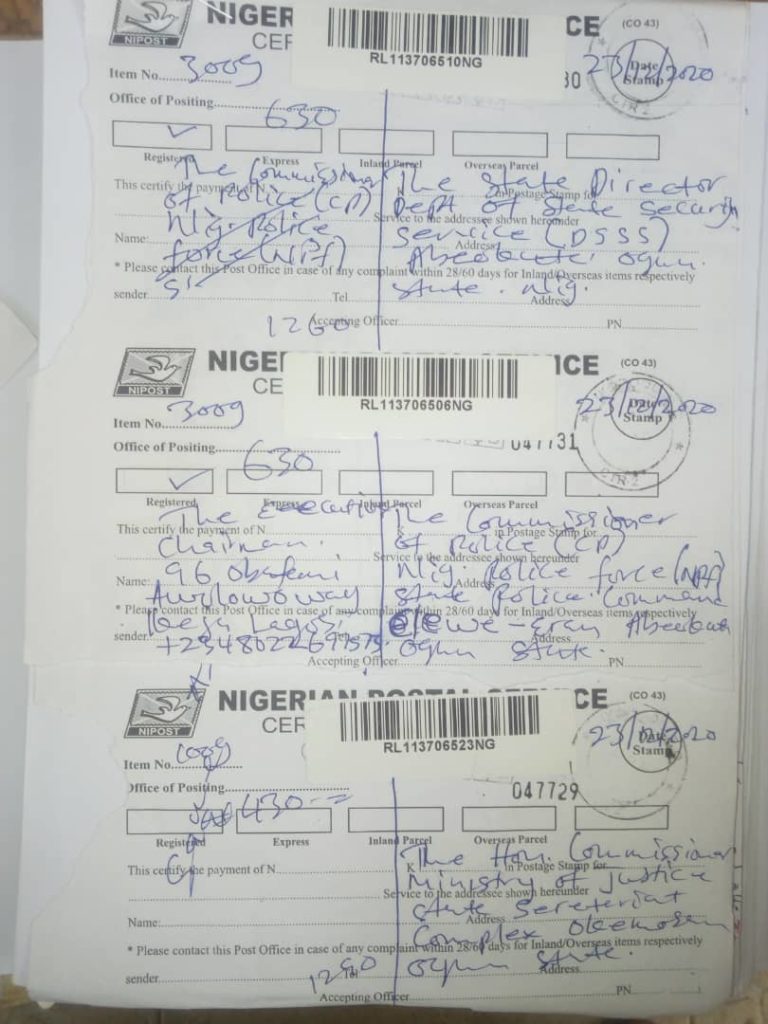 NIGER
CE
(CO 43)
CER
RL113706510NG
NIPOST
Item No. 300g
30
23/12/2020
Date
Stamp
CTR 2
Office of Positing
630
Registered
Express
Inland Parcel
Overseas Parcel
The Commissioner
The State Director
This certify the payment of N
K
in Postage Stamp for
of Police (CP)
Dept of State Security
Service to the addressee shown hereunder
Nig. Police
Service (DSSS)
Name:
Address
force (NPF)
Abeokuta. Ogun
* Please contact this Post Office in case of any complaint within 28/60 days for Inland/Overseas items respectively
State. Nig.
sender
Tel
Address
1260
Accepting Officer
PN
NIGER
ICE
(CO 43)
CE
RL113706506NG
NIPOST
Item No. 300g
23/12/2020
Date
Stamp
CTR 2
047731
Office of Positing
630
Registered
Express
Inland Parcel
Overseas Parcel
The Executive
The Commissioner
This certify the payment of N
K
in Postage Stamp for
Chairman.
of Police (CP)
Service to the addressee shown hereunder
96 Obafemi
Nig. Police force (NPF)
Name:
Address
Awolowo way
State Police Command
* Please contact this Post Office in case of any complaint within 28/60 days for Inland/Overseas items respectively
Ikeja Lagos.
Eleweeran Abeokuta
sender
Address
Ogun State.
Accepting Officer
PN
NIGERIAN POSTAL SERVICE
(CO 43)
CER
RL113706523NG
NIPOST
Item No. 100g
23/12/2020
Date
Stamp
Office of Positing
047729
430
Registered
Express
Inland Parcel
Overseas Parcel
The Hon. Commissioner
This certify the payment of N
K
in Postage Stamp for
Ministry of Justice
Service to the addressee shown hereunder
State Secretariat
Name:
Address
Complex Okemosan
* Please contact this Post Office in case of any complaint within 28/60 days for Inland/Overseas items respectively
Ogun State.
sender
1290
Address
Accepting Officer
PN